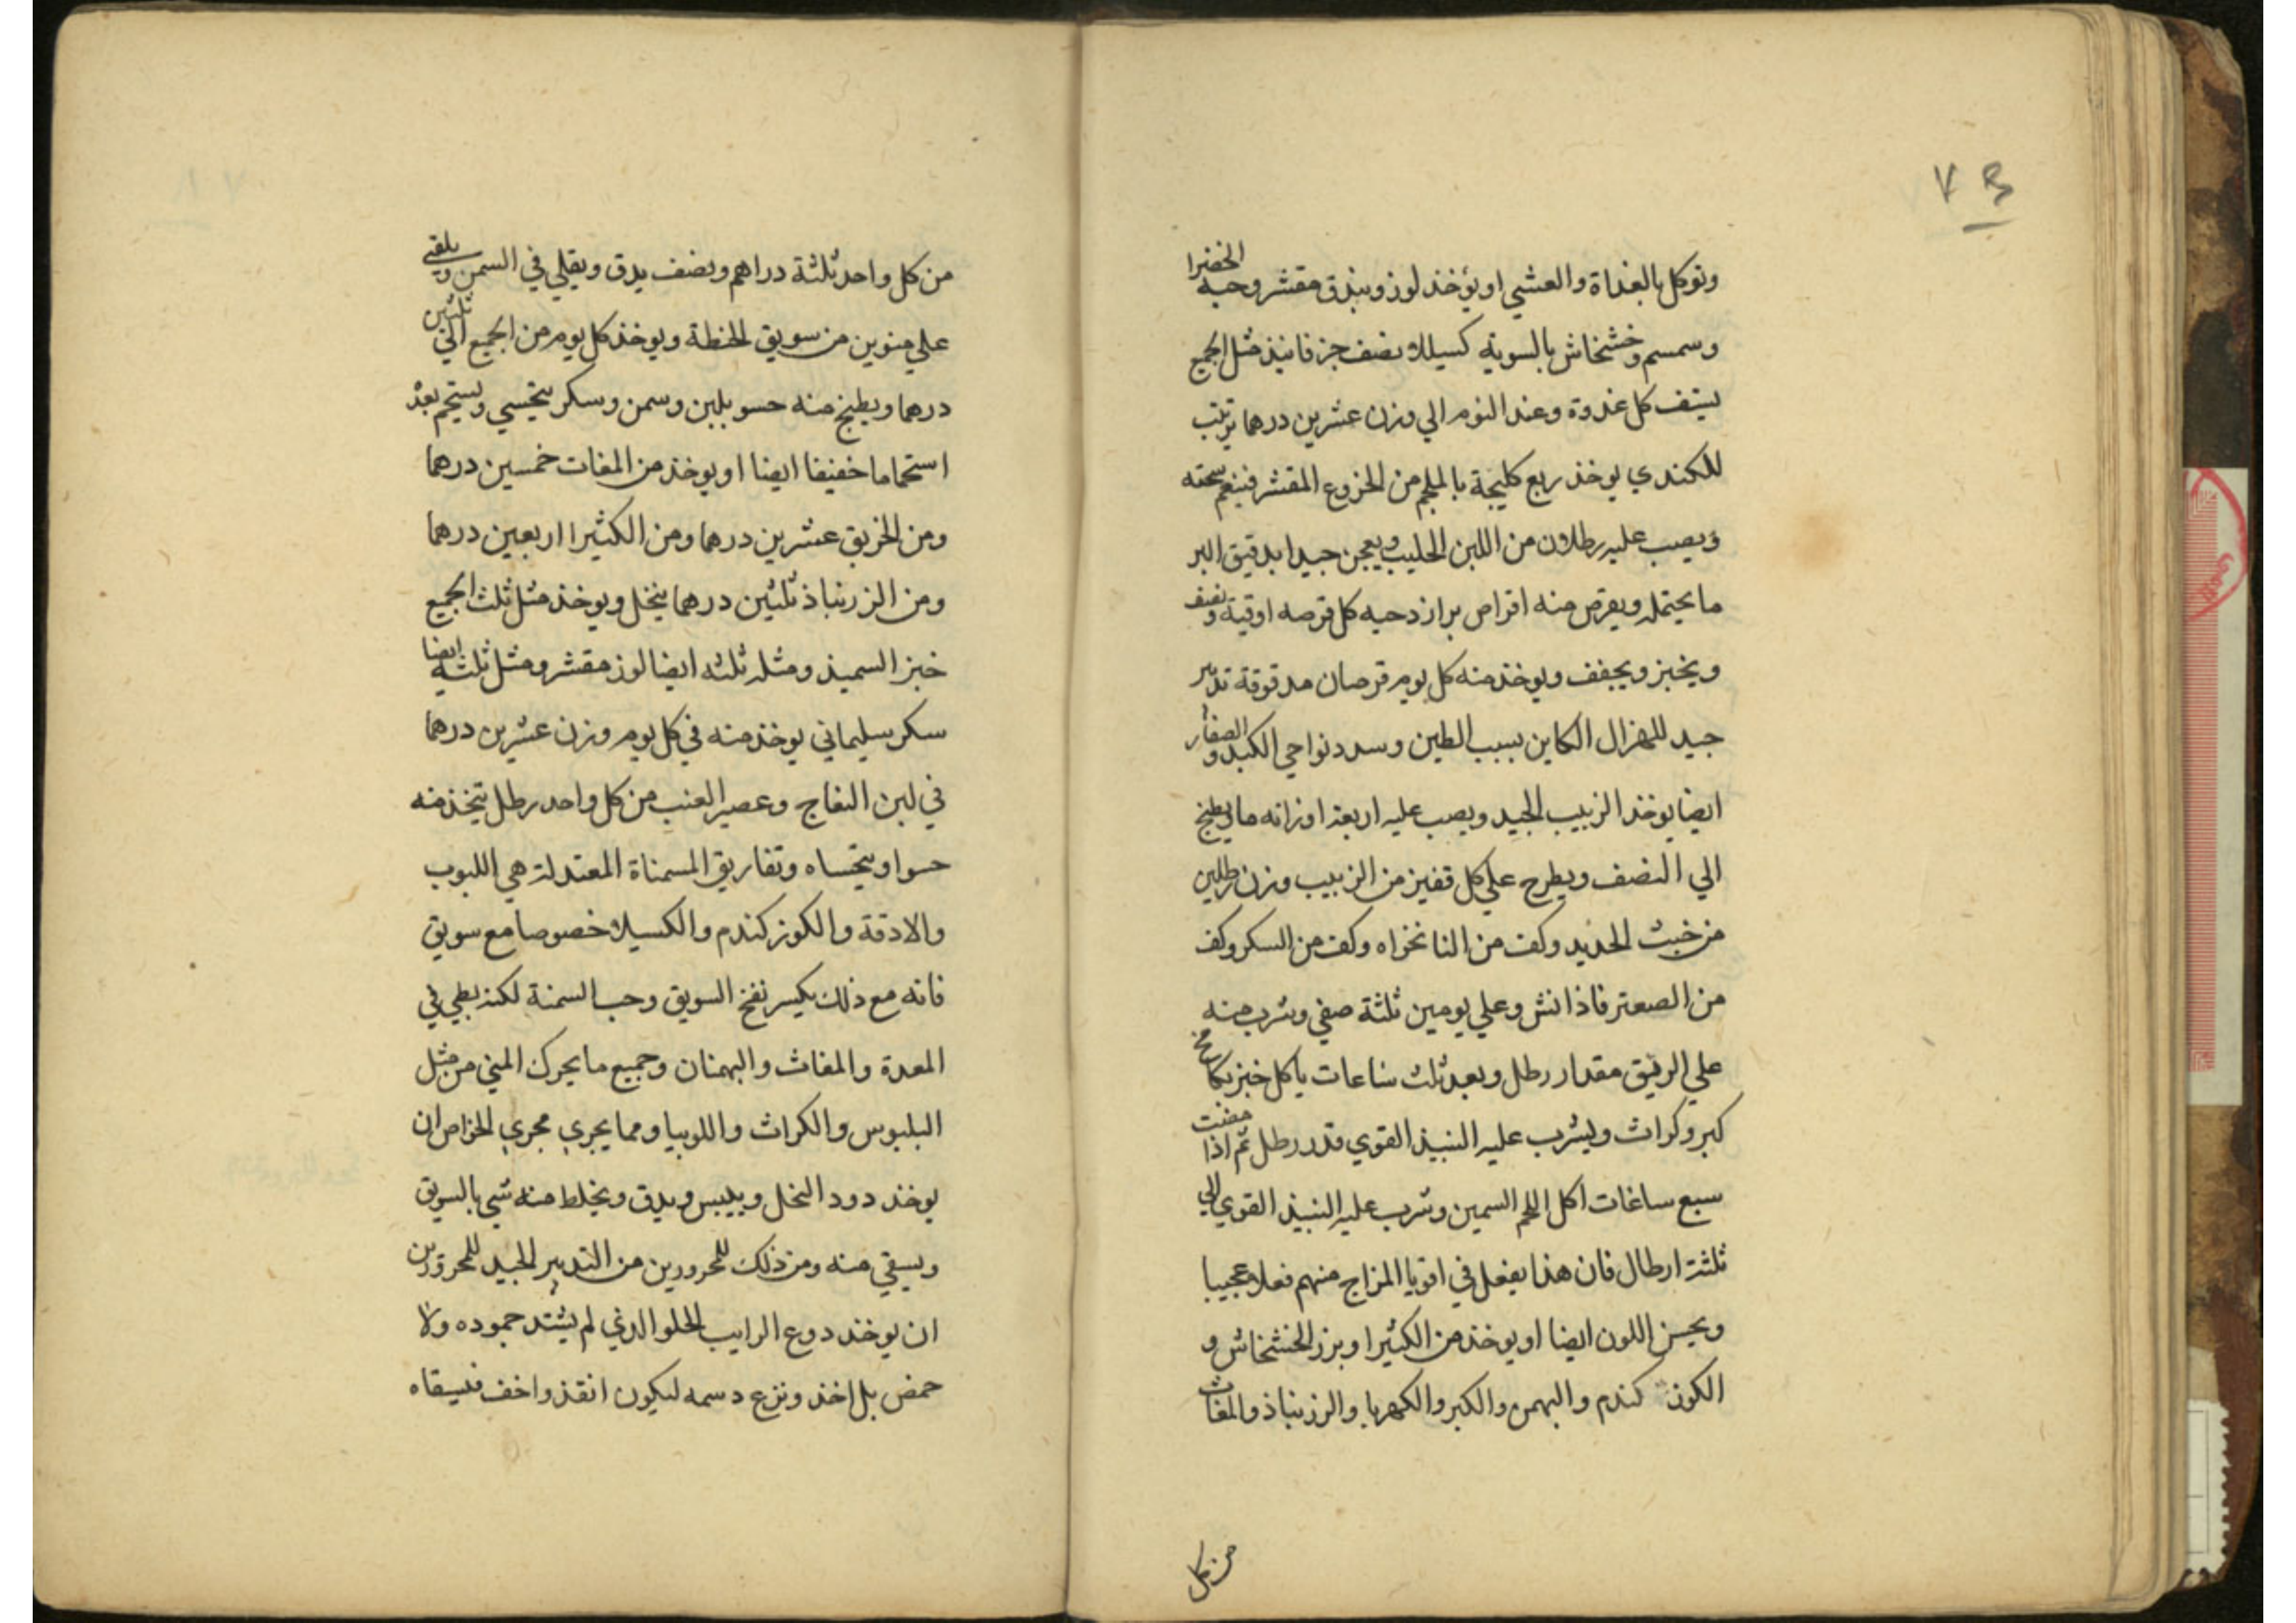 ٧٣
وتوكل بالغداة والعشي او يؤخذ لوز وبندق مقشر وحبه الخضرا
وسمسم وخشخاش بالسويه كسيلا نصف جز فانيذ مثل الجميع
يستف كل غدوة وعند النوم الي وزن عشرين درهما ترتيب
للكندي يوخذ ربع كليجة بالملجم من الخروع المقشر فينعم سحقه
ويصب عليه رطلان من اللبن الحليب ويعجن جيدا بدقيق البر
ما يحتمله ويقرص منه اقراص برازدحيه كل قرصه اوقية ونصف
ويخبز ويجفف ويوخذ منه كل يوم قرصان مدقوقة تدبير
جيد للهزال الكاين بسبب الطين وسدد نواحي الكبد والصفار
ايضا يوخذ الزبيب الجيد ويصب عليه اربعة اوزانه ما ويطبخ
الي النصف ويطرح علي كل قفيز من الزبيب وزن رطلين
من خبث الحديد وكف من النانخواه وكف من السكر وكف
من الصعتر فاذا نش وعلي يومين ثلثة صفي وشرب منه
علي الريق مقدار رطل وبعد ثلث ساعات ياكل خبز بكامخ
كبر وكراث ويشرب عليه النبيذ القوي قدر رطل ثم اذا مضت
سبع ساعات اكل اللحم السمين وشرب عليه النبيذ القوي الي
ثلثة ارطال فان هذا يفعل في اقويا المزاج منهم فعلا عجيبا
ويحسن اللون ايضا او يوخذ من الكثيرا وبزر الخشخاش و
الكوز كندم والبهمن والكبر والكهربا والزرنباذ والمغاث
من كل
من كل واحد ثلثة دراهم ونصف يدق ويقلي في السمن ويلقي
علي منوين من سويق الحنطة ويوخذ كل يوم من الجميع الي ثلثين
درهما ويطبخ منه حسو بلبن وسمن وسكر يتحسي ويستحم بعده
استحماما خفيفا ايضا او يوخذ من المغاث خمسين درهما
ومن الخربق عشرين درهما ومن الكثيرا اربعين درهما
ومن الزرنباذ ثلثين درهما ينخل ويوخذ مثل ثلث الجميع
خبز السميذ ومثله ثلثه ايضا لوز مقشر ومثل ثلثيه ايضا
سكر سليماني يوخذ منه في كل يوم وزن عشرين درهما
في لبن النعاج وعصير العنب من كل واحد رطل يتخذ منه
حسوا ويتحساه وتفاريق المسمناة المعتدلة هي اللبوب
والادقة والكوز كندم والكسيلا خصوصا مع سويق
فانه مع ذلك يكسر نفخ السويق وحب السمنة لكنه بطي في
المعدة والمغاث والبهمنان وجميع ما يحرك المني من مثل
البلبوس والكراث واللوبيا ومما يجري مجري الخواص ان
يوخذ دود النخل وييبس ويدق ويخلط منه شي بالسويق
ويسقي منه ومن ذلك للمحرورين من التدبير الجيد للمحرورين
ان يوخذ دوع الرايب الحلو الذي لم يشتد جموده ولا
حمض بل اخذ ونزع دسمه ليكون انفذ واخف فيسقاه